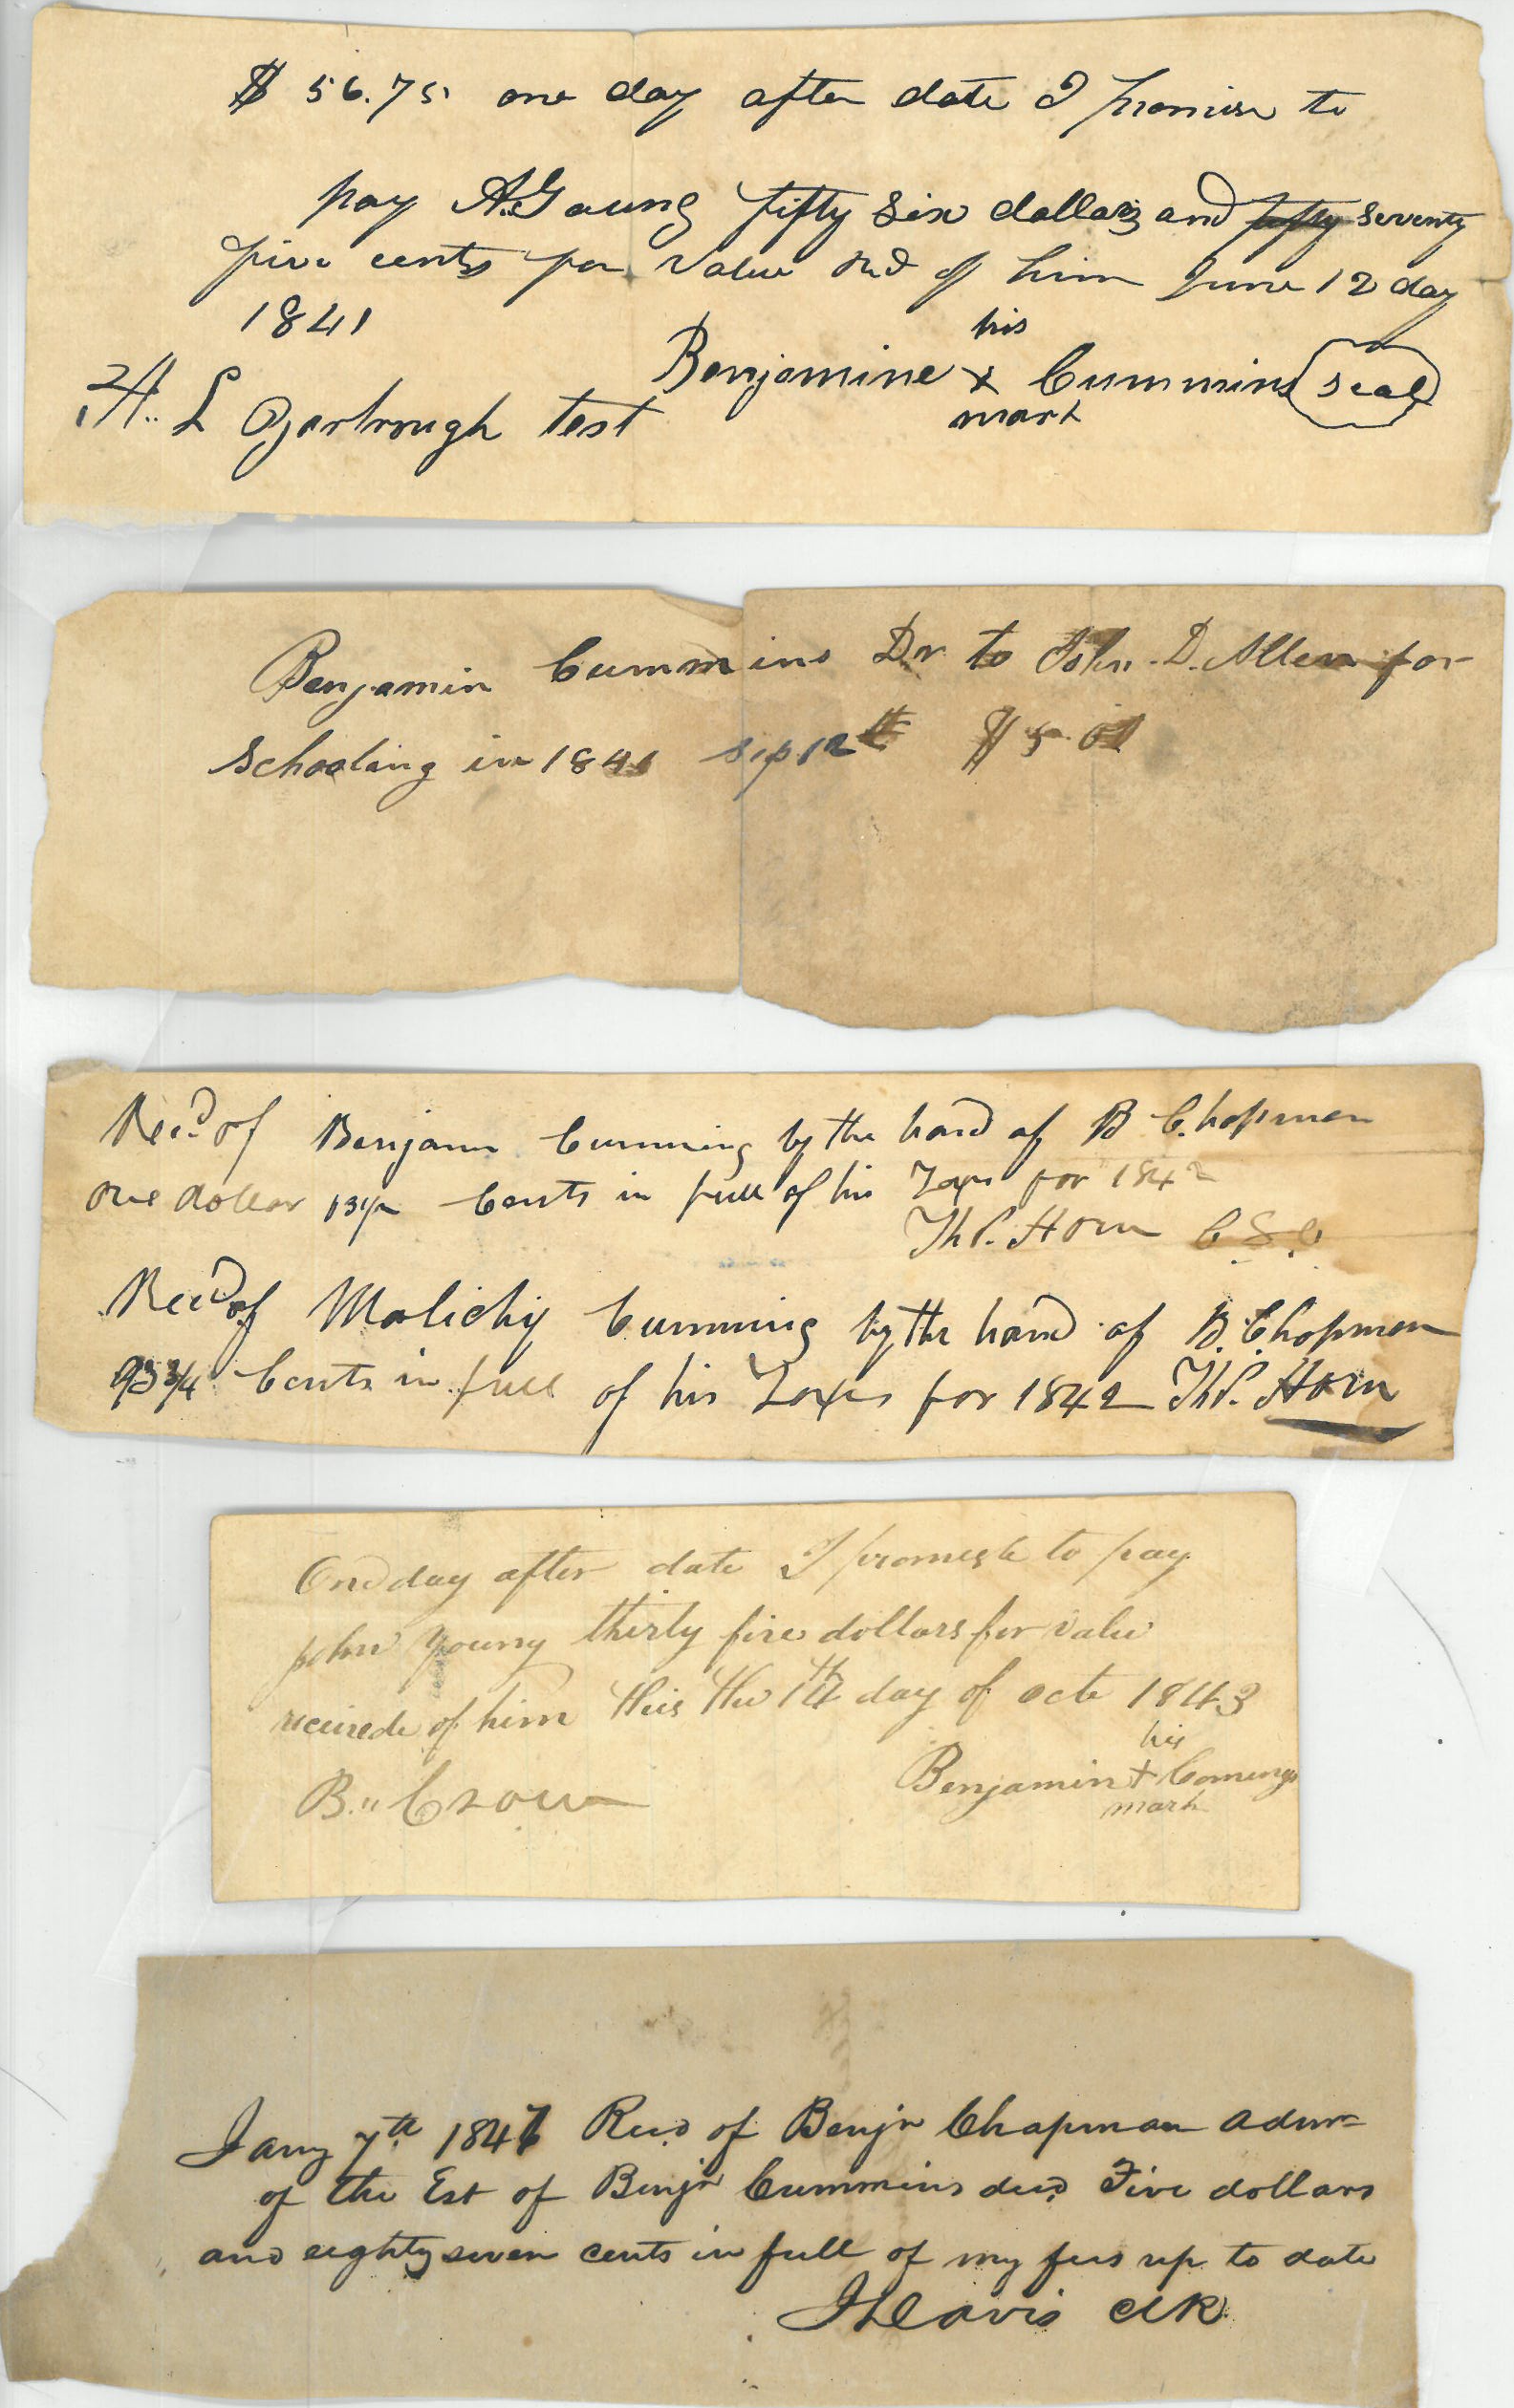 $ 56.75 one day after date I promise to
pay A. Young fifty six dollars and fifty seventy
five cents for value recd of him June 12 day
1841
his
Benjamine x Cummins seal
mark
H. L Yarbrough test
Benjamin Cummins Dr to John. D. Allen for
Schooling in 1841 Sep 12th $5.
Recd of Benjamn Cummins by the hand of B Chapman
one dollar Cents in full of his Taxes for 1842
Th P. Horn C.S.C.
Recd of Malichy Cummins by the hand of B. Chapman
93 3/4 Cents in full of his Taxes for 1842 Th P. Horn
One day after date I promise to pay
john Young thirty five dollars for value
receivede of him this the 14th day of octe 1843
his
Benjamin + Comings
mark
B. " Crow
Jany 7th 184 Recd of Benjn Chapman admr
of the Est of Benjn Cummins decd Five dollars
and eighty seven cents in full of my fees up to date
Davis Clk